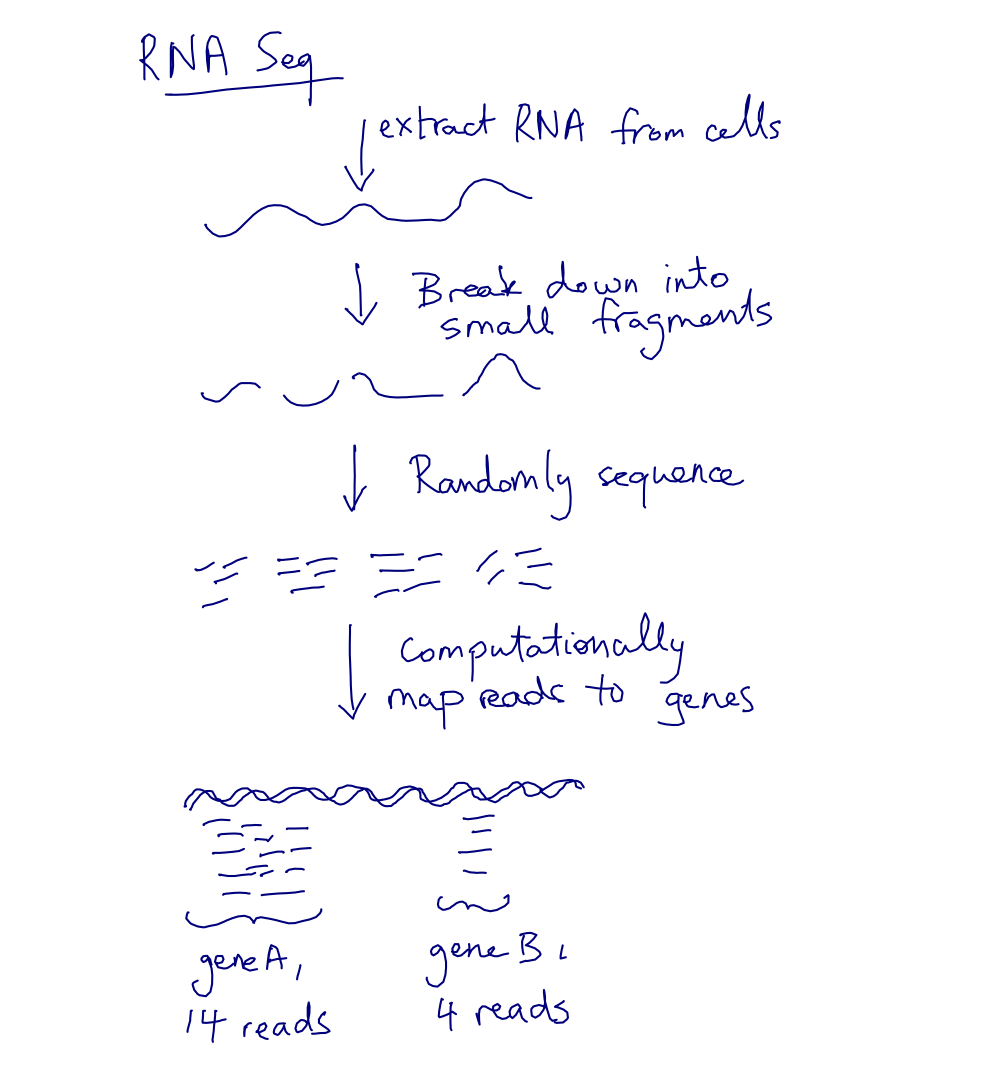 RNA Seq
extract RNA from cells
Break down into
small fragments
Randomly sequence
Computationally
map reads to genes
gene A,
14 reads
gene B,
4 reads